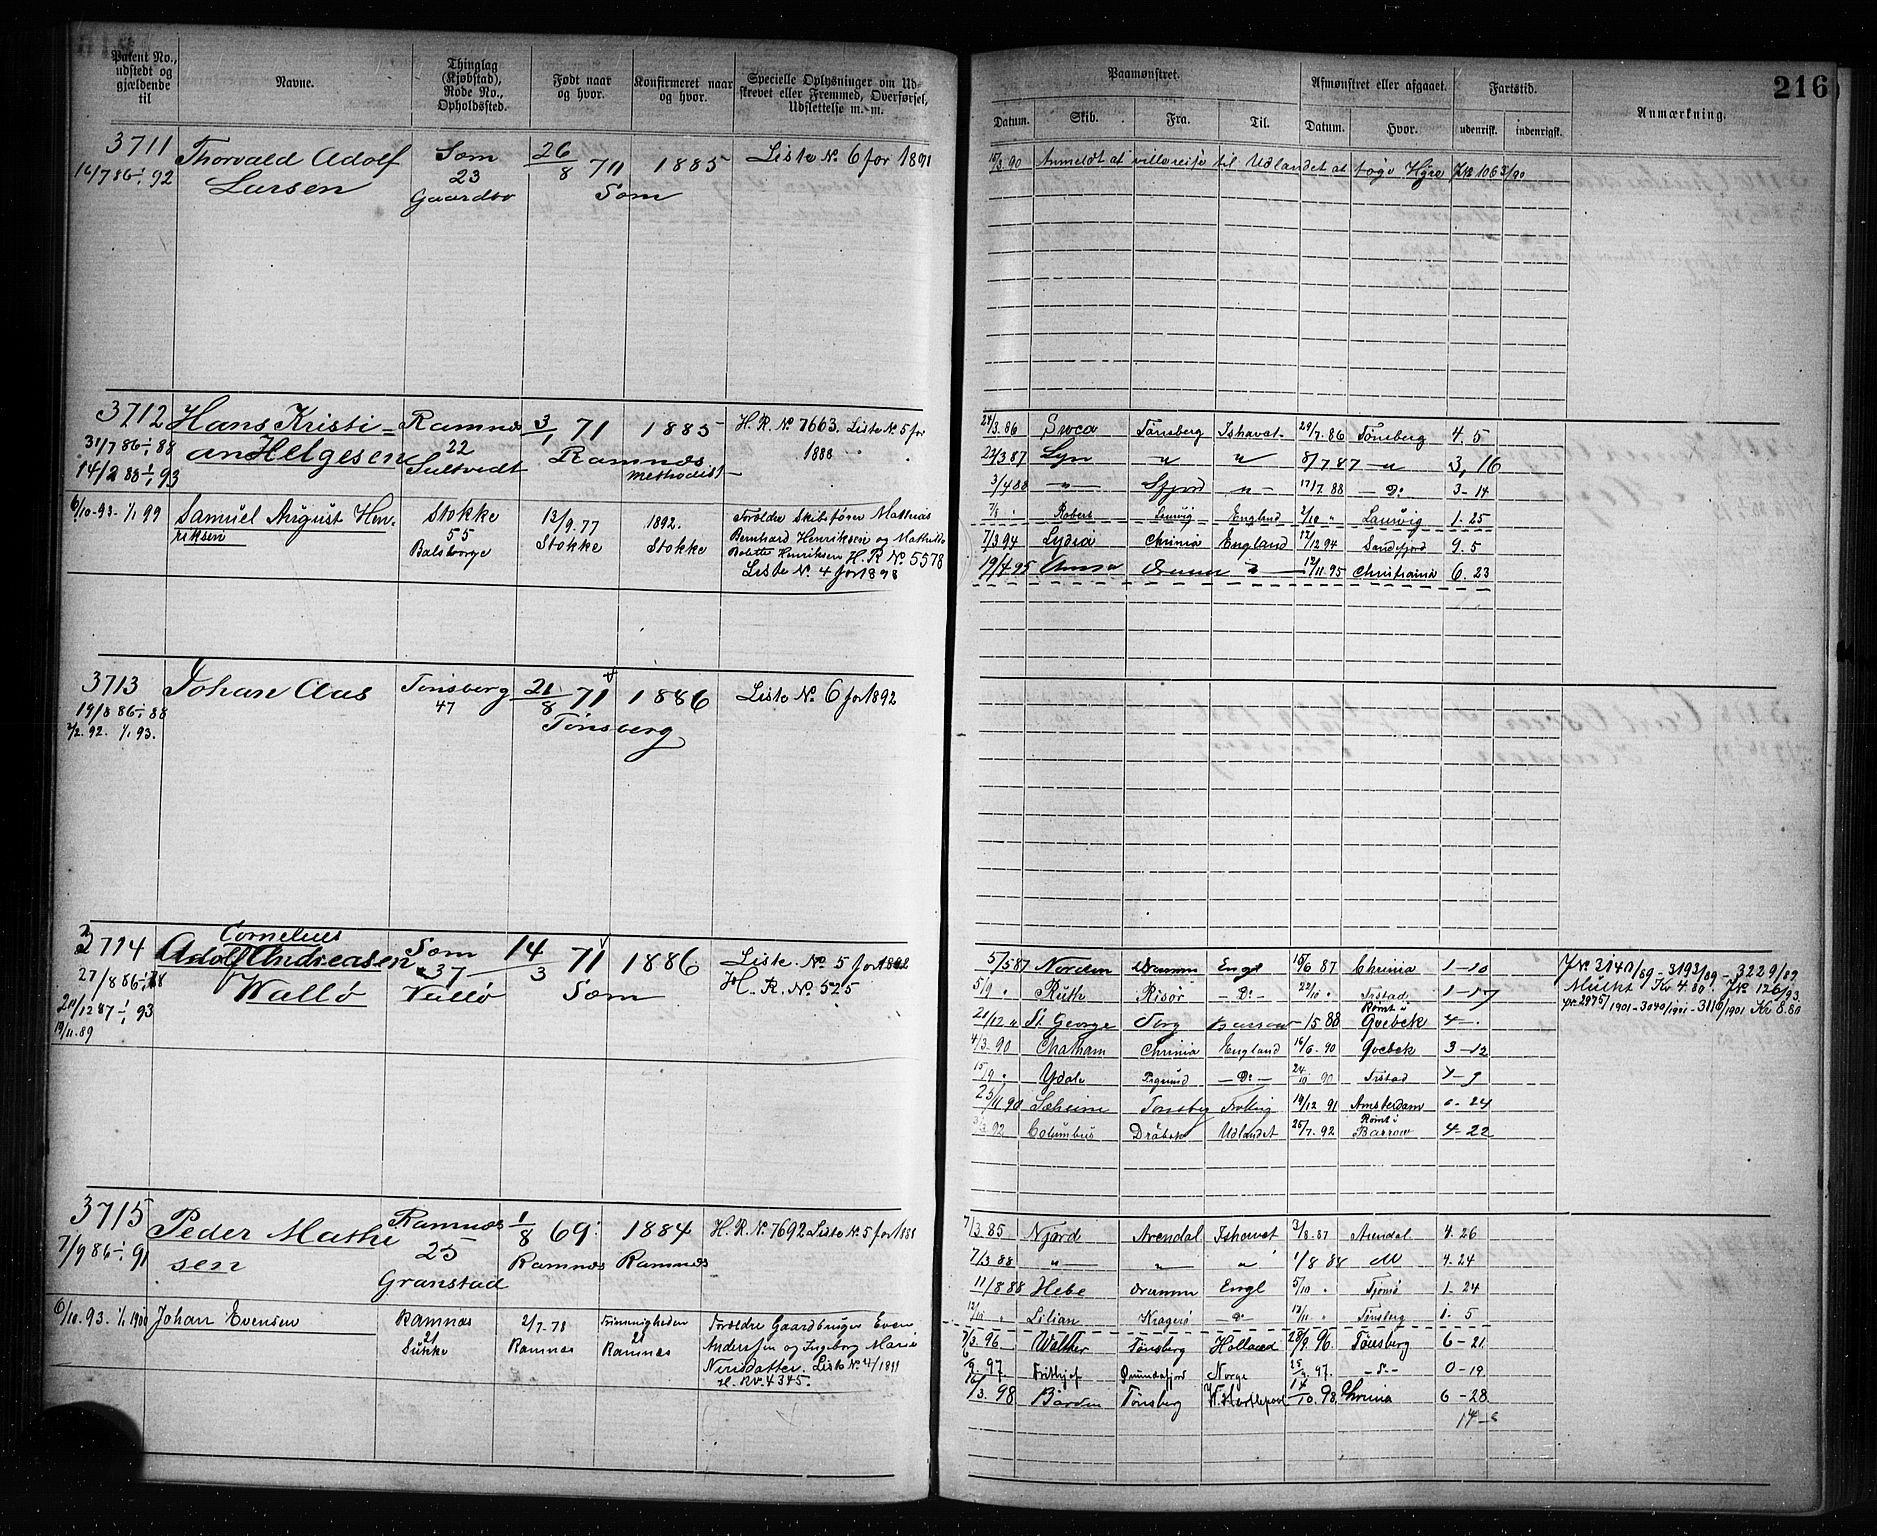 216
Patent No., udstedt og gjældende til
Navne.
Thinglag (Kjøbstad), Rode No., Opholdssted.
Født naar og hvor.
Konfirmeret naar og hvor.
Specielle Oplysninger om Udskrevet eller Fremmed, Overførsel, Udslettelse m. m.
Paamønstret.
Afmønstret eller afgaaet.
Fartstid.
Anmærkning.
Datum. Skib. Fra. Til. Datum. Hvor. udenrisk. indenrigsk.
3711 Thorvald Adolf Sem 26/8 70 1885 Liste No. 6 for 1891
14/7 86 - 1/1 92 Larsen 23 Sem
Gaardbo
Anmeldt at ville reise til Udlandet at søge Hyre JNo 1063/90
3712 Hans Kristi- Ramnæs 3/1 71 1885 H. R. No 7663. Liste No. 5 for
31/7 86 - 1/1 88 an Helgesen 22 Ramnæs 1888
14/2 88 - 1/1 93 methodist
24/3. 86 Svea Tønsberg Ishavet 29/7. 86 Tønsberg 4. 5
22/3 87 Lyn " " 8/7 87 - " 3, 16
3/4 88 - " - " - 17/7 88 - Do 3 - 14
6/10. 93. - 1/1 99 Samuel August Hen- Stokke 12/9. 77 1892. Forældre Skibsfører Mathias
riksen 55 Stokke Stokke Bernhard Henriksen og Mathilde
H. R. No 5578
Liste No. 4 for 1898
England Lauvig 1. 25
7/3 94 Lydia Chrinia England 12/12 94 Sandefjord 9. 5
19/4 95 12/11. 95 Christiania 6. 23
3713 Johan Aas Tønsberg 21/8 71 1886 Liste No. 6 for 1892
19/8 86 - 1/1 88 47 Tønsberg
2/2. 92. 1/1 93.
3714 Cornelius
Adolf Andreasen Sem 14/3 71 1886 Liste No. 5 for
27/8 86 - 37 Sem H. R. No. 525
Wallø Vallø
20/12 87 - 1/1 93
19/11. 89
5/5 87 Norden Dramm Engl 15/6 87 Chrinia 1 - 10
5/9 " Ruth Risør - Do - 22/10 " Frstad 1 - 17
21/12 " St. George 15 88 Rømt i Qvebek 4 -
4/3 - 90 Chatham Chrinia England 16/6. 90 Qvebek 3 - 12
15/9 " Ydale - Do - 24/10 90 Frstad
25/11 90 Sæheim Tønsbg 19/12 91 Amsterdam 0 - 24
92 Columbus Drøbak Udlandet 25/7. 92 Rømt i Barrow 4 - 22
JNo 3140/89 - 3193/89 - 3229/89
Mulkt Kr 4.80. JNo 126/93.
JNo 2975/1901 - 3040/1901 - 3116/1901 Kr 8.80
3715 Peder Mathi- Ramnæs 1/8 69 1884 H. R. No. 7692 Liste No. 5 for 1888
7/9 86 - 1/1 91 sen 25 Ramnæs Ramnæs
Granstad
7/3. 85 Njord Arendal Ishavet 2/8. 87 Arendal 4. 26
7/3 88 " " " 1/8 88 4. 24
11/8 88 Hebe Dramm Engl 5/10 " 1. 24
12/10 " Lilian Kragerø - Do - 13/11 " Tønsberg 1. 5
6/10. 93. 1/1 1900 Johan Evensen Ramnæs 2/7. 78 Forældre Gaardbruger Even
21 Ramnæs Ramnæs Andersen og Ingeborg Maria
Liste No. 4/1899
H. R. No. 4345.
7/3. 96 Walther Tønsberg Holland 28/9. 96. Tønsberg 6 - 21
97 Frithjof Norge 97. - Do - 0 - 19
3. 98 Tønsberg W. Hartlepool 14/10. 98 Chrinia 6 - 28